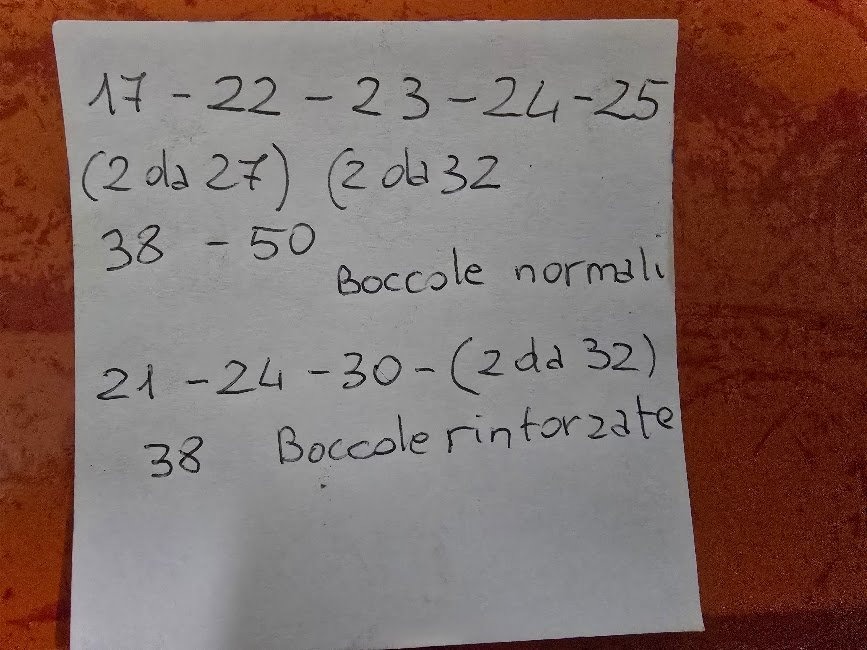 17 - 22 - 23 - 24 - 25
(2 da 27) (2 da 32
38 - 50
Boccole normali
21 - 24 - 30 - (2 da 32)
38 Boccole rinforzate